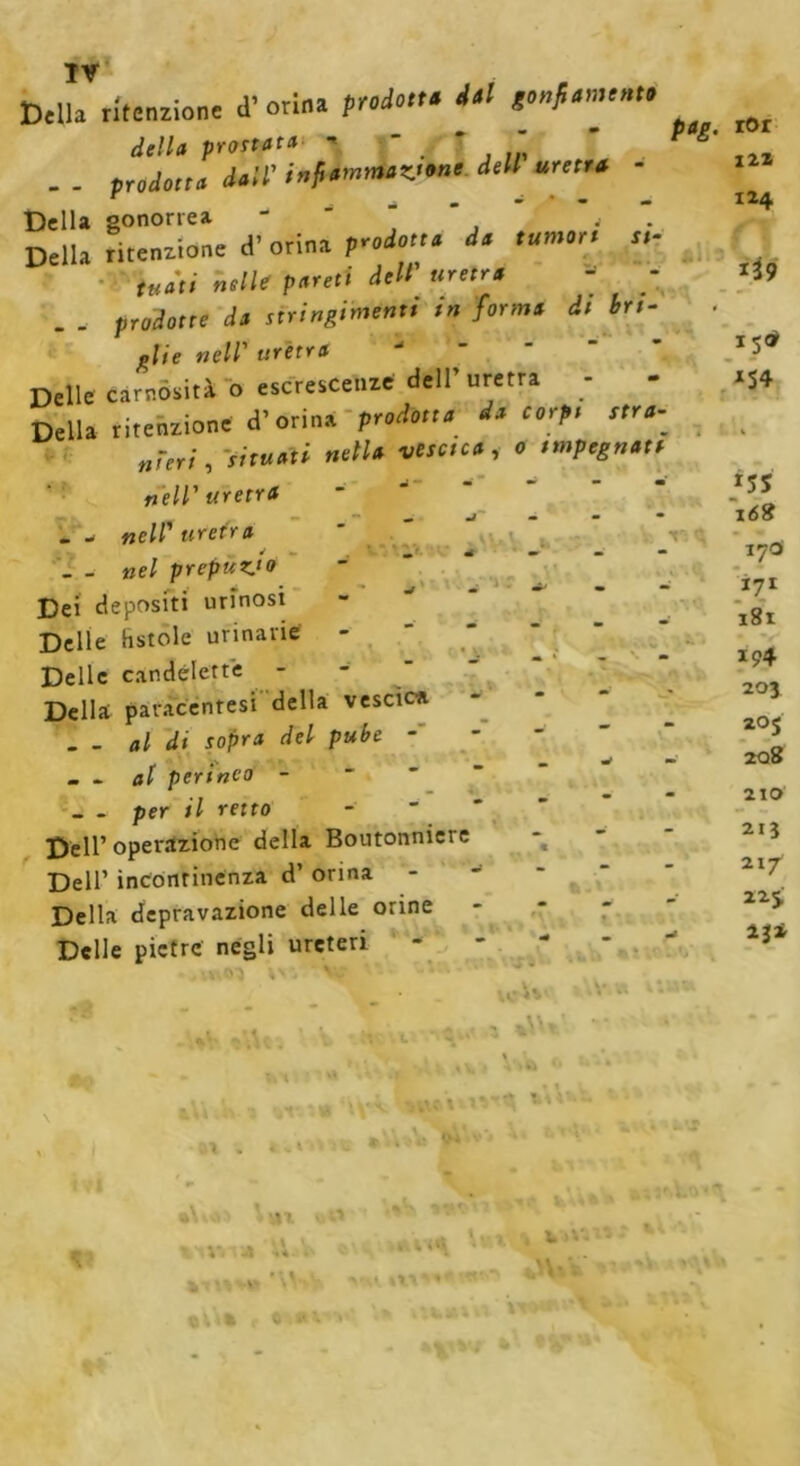 IV
Della ritenzione d' orina prodotta dal gonfiamento
della prostata - - - - - pag. 101
- - prodotta dall' infiammazione dell' uretra - 122
Della gonorrea - - - - - - 124
Della ritenzione d' orina prodotta da tumori si-
tuati nelle pareti dell' uretra - - 139
- - prodotte da stringimenti in forma di bri-
glie nell' uretra - - - - - 150
Delle carnosità o escrescenze dell' uretra - - 154
Della ritenzione d' orina prodotta da corpi stra-
nieri, situati nella vescica, o impegnati
nell' uretra - - - - - - 155
- - nell' uretra - - - - - 168
- - nel prepuzio - - - - - - 170
Dei depositi urinosi - - - - - - 171
Delle fistole urinarie - - - - - - 181
Delle candelette - - - - - - - 194
Della paracentesi della vescica - - - - 203
- - al di sopra del pube - - - - - 205
- - al perineo - - - - - - 208
- - per il retto - - - - - - 210
Dell' operazione della Boutonniere - - - 213
Dell' incontinenza d' orina - - - - - 217
Della depravazione delle orine - - - - 225
Delle pietre negli ureteri - - - - - 232